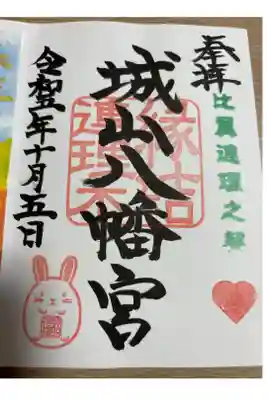 奉拝
比翼連理之契
城山八幡宮
縁結
連理木
令和五年十月五日